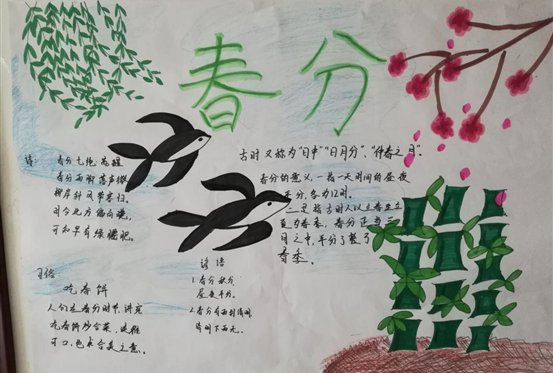 春分
古时又称为“日中”“日月分”、“仲春之月”.
诗:
春分七绝·苏醒
春分雨脚落声微
柳岸斜风带客归。
时令北方偏向晚,
可知早有绿腰肥。
春分的意义,一指一天时间白昼夜
平分,各为12时。
二是指古时以立春至立
夏为春季,春分正当三
月之中,平分了
春季。
习俗
吃春饼
人们在春分时节,讲究
吃春饼炒合菜,
可口,色合美之意。
谚语
1.春分秋分,
昼夜平分。
2.春分有雨到清明
清明下雨无